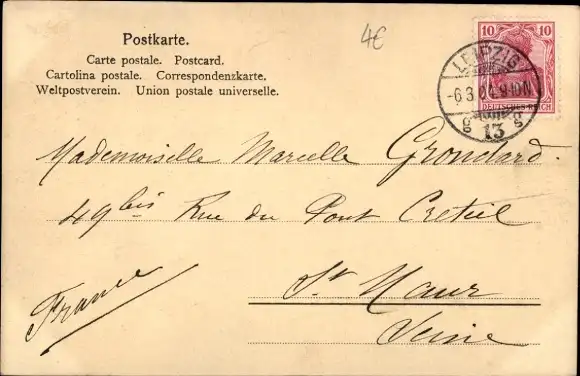 Postkarte.
Carte postale. Postcard.
Cartolina postale. Correspondenzkarte.
Weltpostverein. Union postale universelle.
4€
10 10
DEUTSCHES REICH
LEIPZIG
13
Mademoiselle Marcelle Grondard.
49 bis Rue du Pont Creteil
St Maur
Seine
France